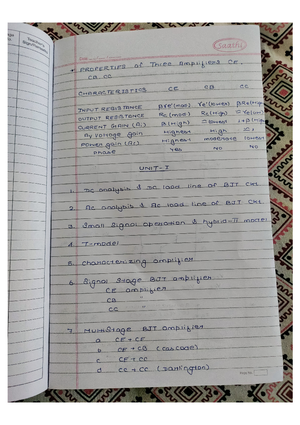 Saathi
• PROPERTIES OF THREE Amplifiers CE,
CB, CC
CHARACTERISTICS CE CB CC
INPUT RESISTANCE βre'(mod) re'(lowest)
OUTPUT RESISTANCE Rc(mod) Rc(High) = re'(low)
CURRENT GAIN (Ai) β(High)
Av Voltage Gain Highest High ≈1
Power gain (AP) Highest moderate lowest
Phase YES NO NO
UNIT-I
1. DC analysis & DC load line of BJT CKt.
2. AC analysis & AC load line of BJT CKt.
3. Small Signal operation & hybrid-π model
4. T-model
5. Characterizing amplifier
6 Signal Stage BJT amplifier
CE amplifier
CB "
CC "
7. MultiStage BJT amplifier
a CE + CE
b CE + CB (cascode)
c CE + CC
d CC + CC (Darlington)